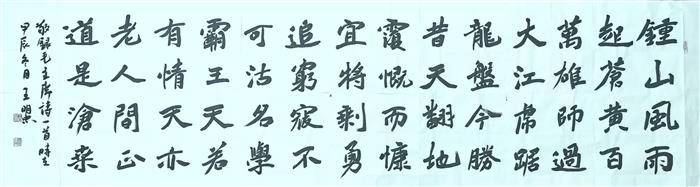 鍾山風雨
起蒼黄百
萬雄師過
大江虎踞
龍盤今勝
昔天翻地
覆慨而慷
宜將剩勇
追窮寇不
可沽名學
霸王天若
有情天亦
老人間正
道是滄桑
敬録毛主席诗一首時在
甲辰冬月王明